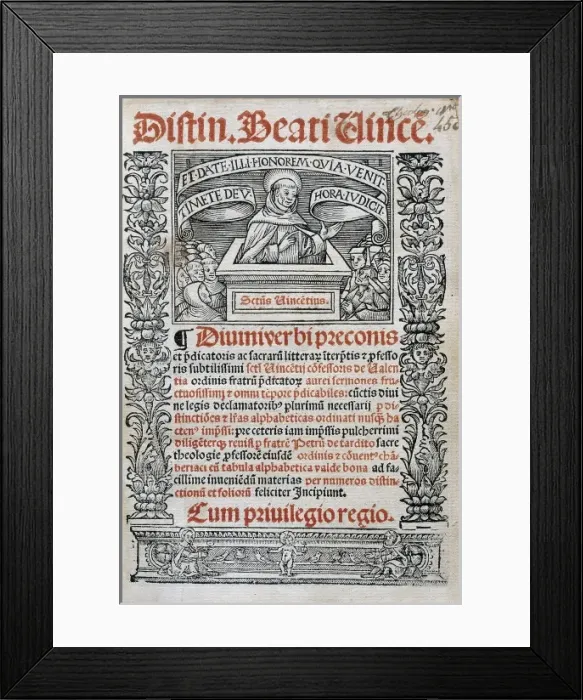 Distin. Beati Vincē.
456
ET·DATE·ILLI·HONOREM·QVIA·VENIT·
TIMETE DEV̄ HORA·IVDICII·
Sctūs Uincētius.
¶ Diuini verbi preconis
et p̄dicatoris ac sacrarū litteraꝝ īterp̄tis ⁊ ꝓfesso
ris subtilissimi sctī Uincētij cōfessoris de Ualen
tia ordinis fratrū p̄dicatoꝝ aurei sermones fru
ctuosissimi ⁊ omni tēpore p̄dicabiles: cūctis diui
ne legis declamatoribꝰ plurimū necessarij ꝑ di
stinctiōes ⁊ lr̄as alphabeticas ordinati nusq̄ ha
ctenꝰ imp̄ssi: pre ceteris iam imp̄ssis pulcherrimi
diligēterqꝫ reuisi ꝑ fratrē Petrū de tardito sacre
theologie ꝓfessorē eiusdē ordinis ⁊ cōuentꝰ chā
beriaci cū tabula alphabetica valde bona ad fa-
cillime inueniēdū materias per numeros distin-
ctionū et foliorū feliciter Incipiunt.
Cum priuilegio regio.